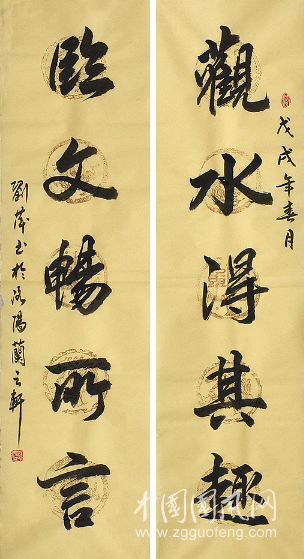 戊戌年春月
觀水得其趣
臨文暢所言
劉书於洛陽蘭云軒
中国国风网
www.zgguofeng.com